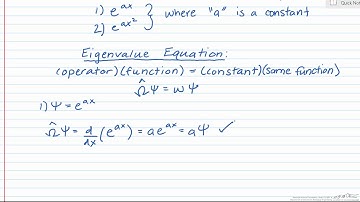 1) e^{ax} } where "a" is a constant
2) e^{ax²}
Eigenvalue Equation:
(operator)(function) = (constant)(same function)
Ω̂Ψ = ωΨ
1) Ψ = e^{ax}
Ω̂Ψ = d/dx (e^{ax}) = ae^{ax} = aΨ ✓